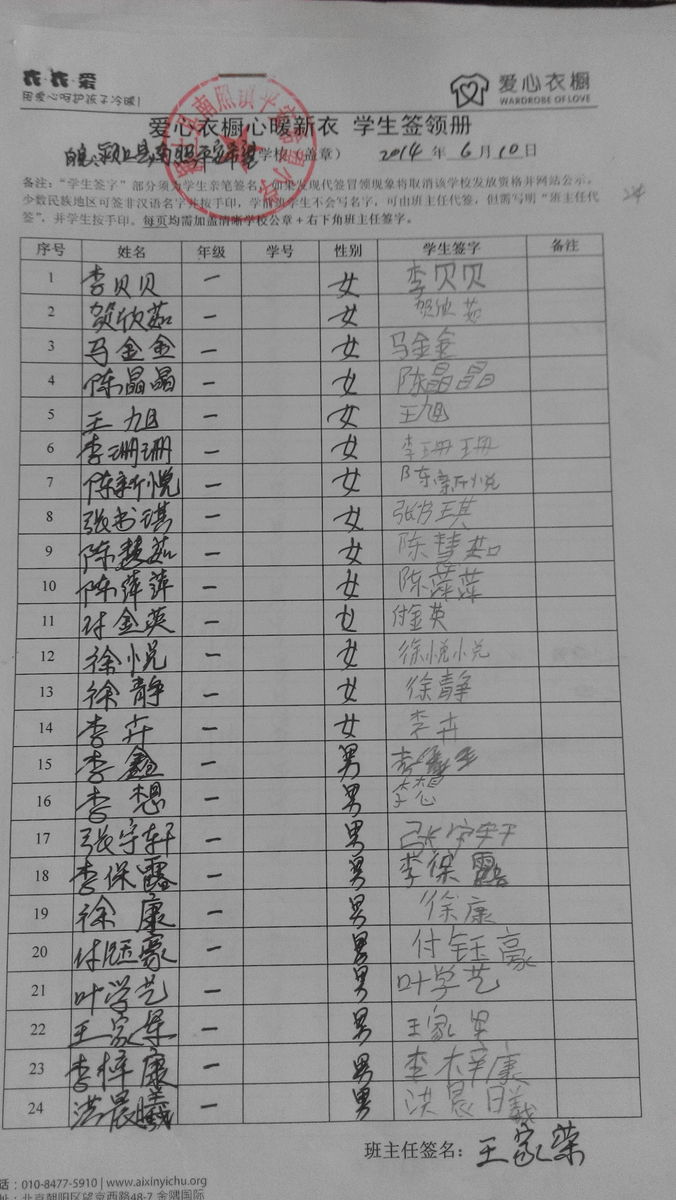 衣·衣·爱
用爱心呵护孩子冷暖!
爱心衣橱
WARDROBE OF LOVE
爱心衣橱心暖新衣 学生签领册
颍上县南照 学校(盖章) 2014 年 6 月 10 日
备注:“学生签字”部分须为学生亲笔签名,如果发现代签冒领现象将取消该学校发放资格并网站公示。
24
少数民族地区可签非汉语名字并按手印,学前班学生不会写名字,可由班主任代签,但需写明“班主任代
签”,并学生按手印。每页均需加盖清晰学校公章+右下角班主任签字。
序号 姓名 年级 学号 性别 学生签字 备注
1 李贝贝 一 女 李贝贝
2 贺欣茹 一 女 贺欣茹
3 马金金 一 女 马金金
4 陈晶晶 一 女 陈晶晶
5 王旭 一 女 王旭
6 李珊珊 一 女 李珊珊
7 陈新悦 一 女 陈新悦
8 张书琪 一 女 张书琪
9 陈慧茹 一 女 陈慧如
10 陈萍萍 一 女 陈萍萍
11 付金英 一 女 付金英
12 徐悦 一 女 徐悦悦
13 徐静 一 女 徐静
14 李卉 一 女 李卉
15 李鑫 一 男 李
16 李想 一 男 李想
17 张宇轩 一 男 张宇轩
18 李保露 一 男 李保露
19 徐康 一 男 徐康
20 付钰豪 一 男 付钰豪
21 叶学艺 一 男 叶学艺
22 王家旱 一 男 王家旱
23 李梓康 一 男 李梓康
24 洪晨曦 一 男 洪晨曦
班主任签名:王家荣
话:010-8477-5910 | www.aixinyichu.org
址:北京朝阳区望京西路48-7 金隅国际